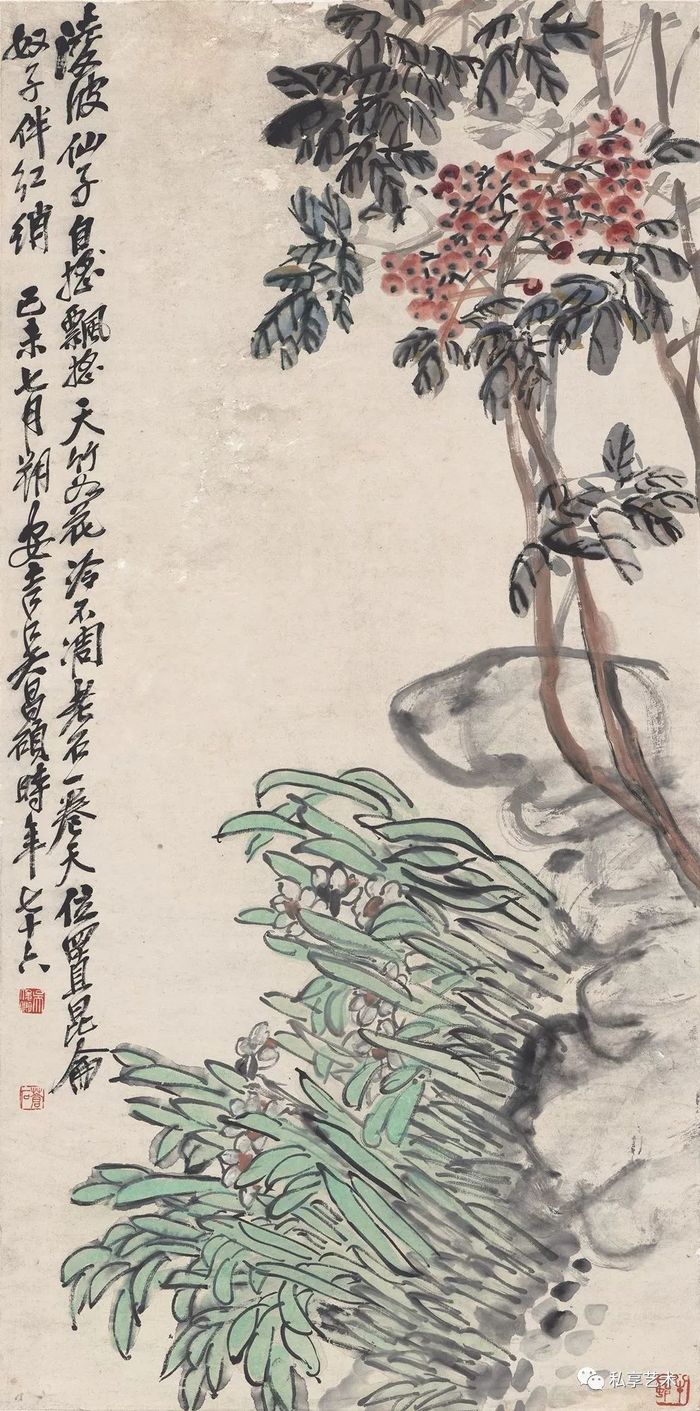 淩波仙子自搖飄搖天竹如花冷不凋老石一卷天位置昆侖
奴子伴紅綃 己未七月朔安吉吳昌碩時年七十六
私享艺术